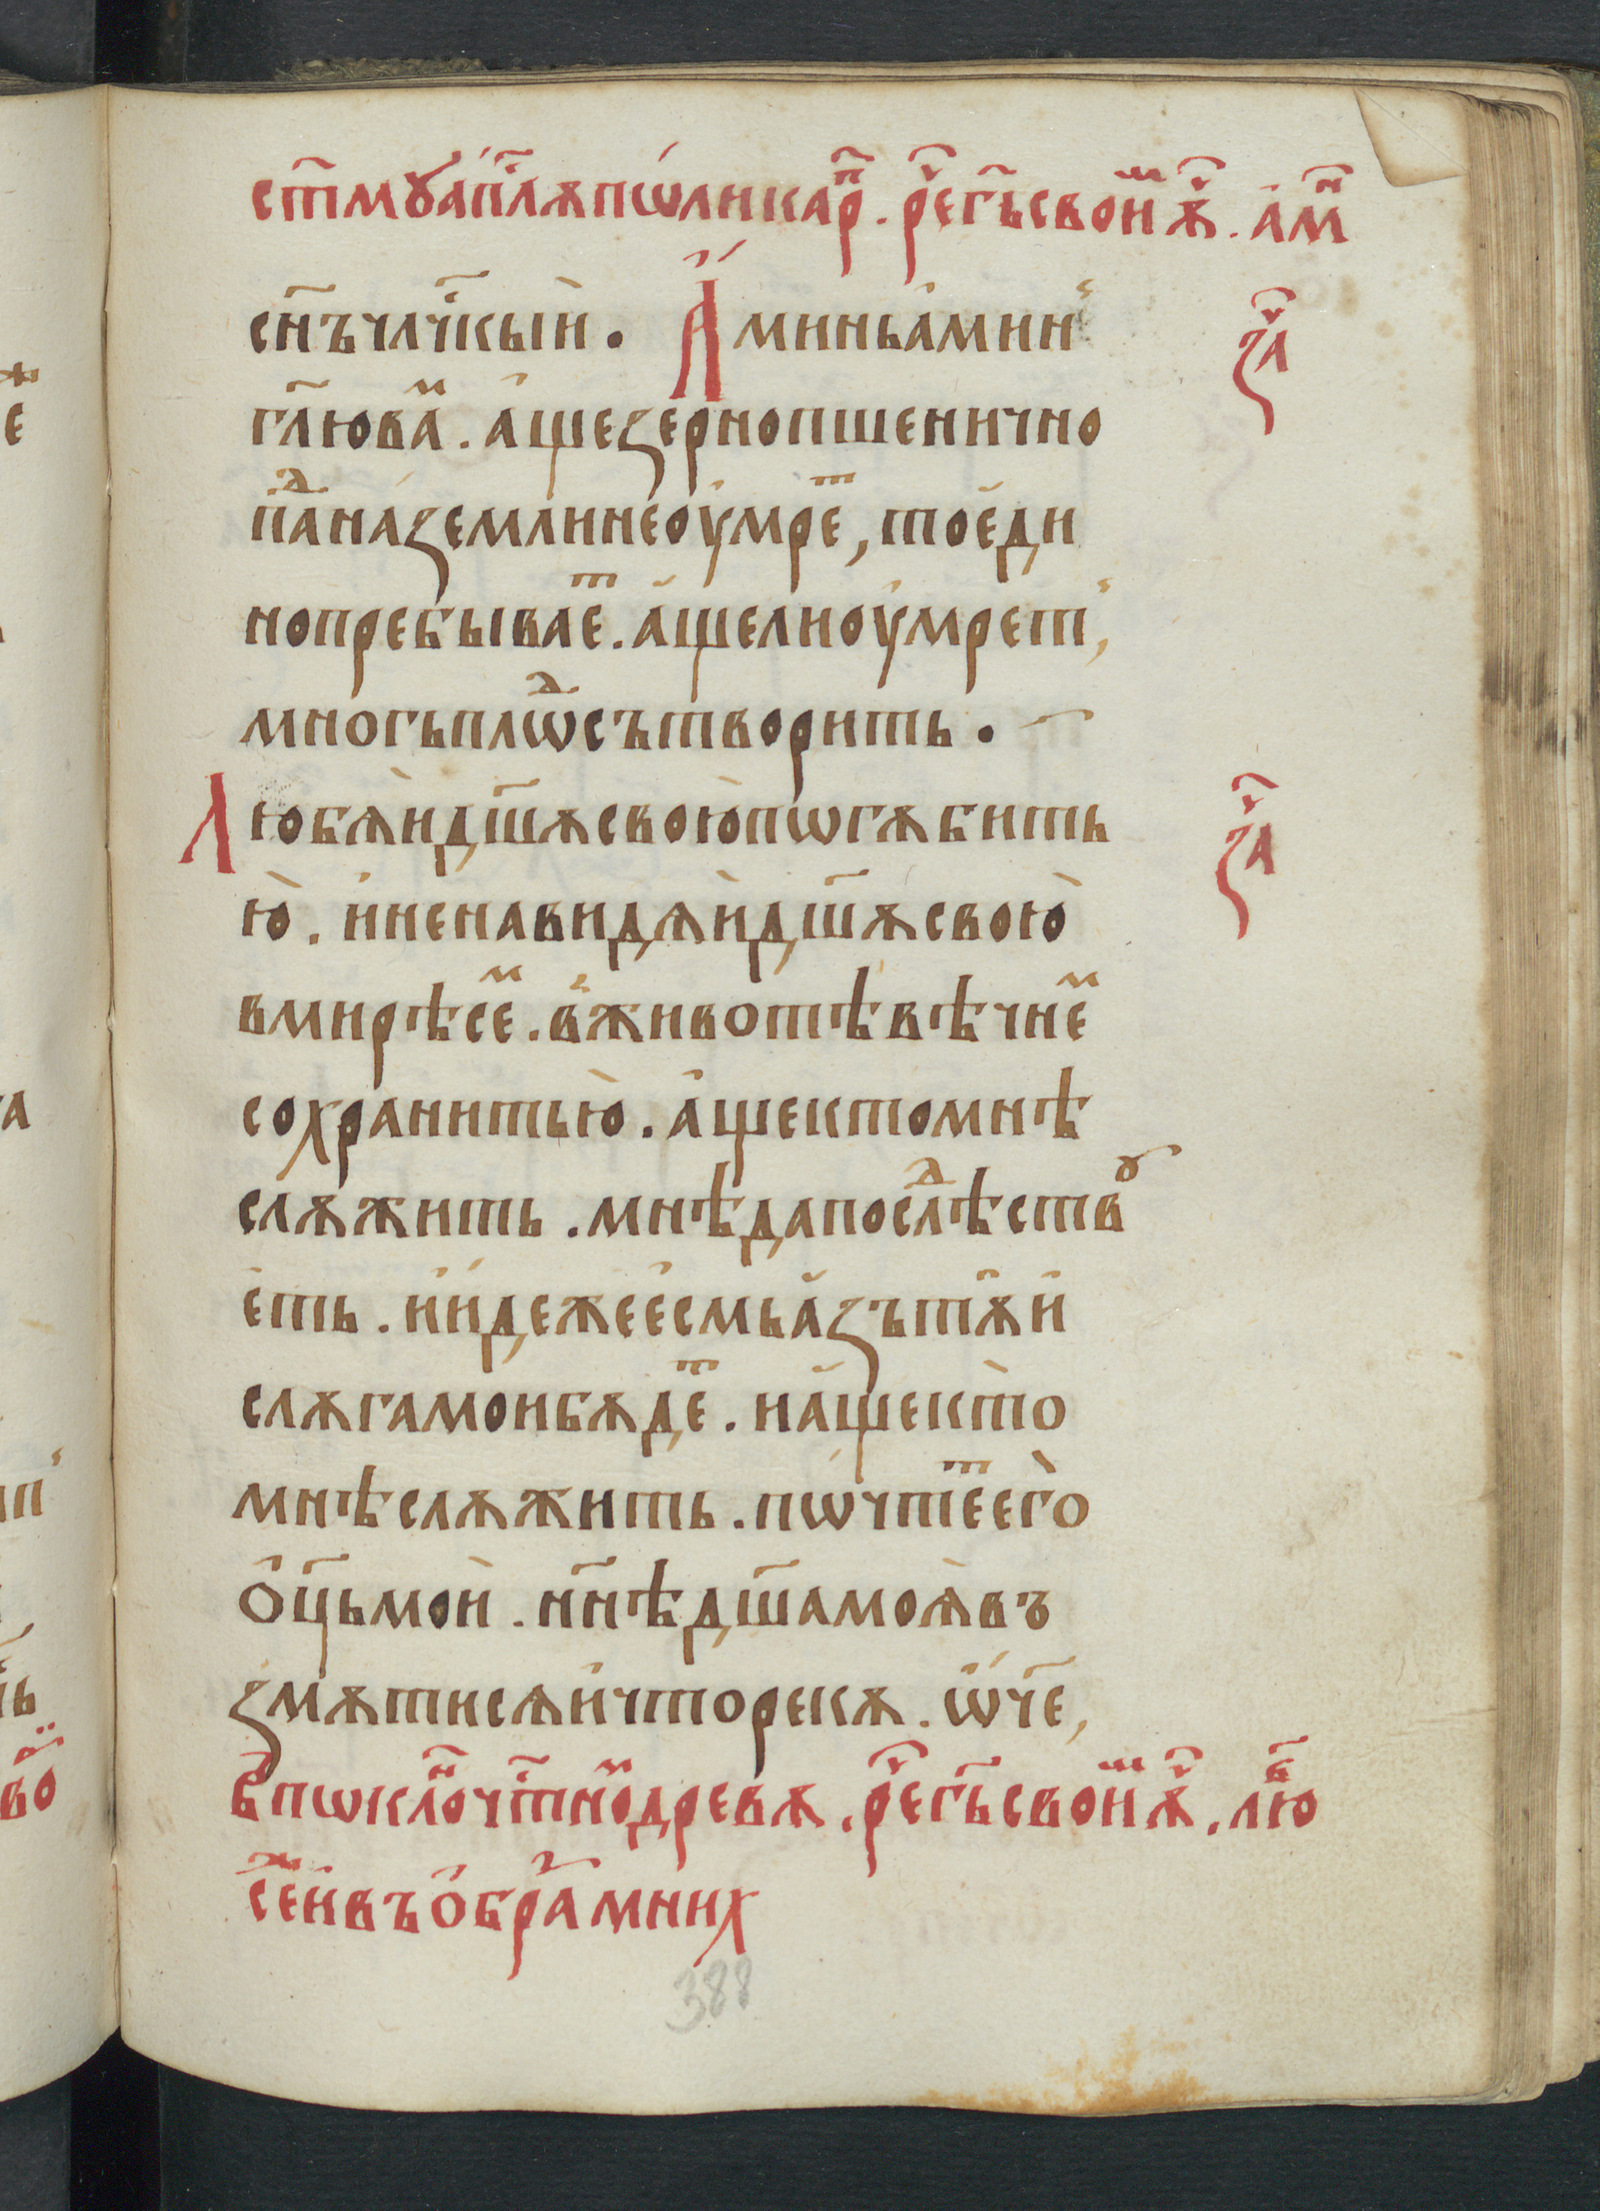 ст҃мꙋ а҆п҃лѫ пѡликар̾ⷫ҇. рⷱ҇е гь҃ свои̾ⷨ ѫⷱ҇. а҆мⷩ҇
сн҃ъ чл҃чкыѝ. А҆минь а҆мин̾
гл҃ю ваⷨ. а҆ще зерно пшенично
паⷣ на земли не оу҆мреⷮ, то еди
но пребываеⷮ. а҆ще ли оу҆мрет̾,
многь плѡⷣ сътворить.
Любѧѝ дш҃ѫ свою̀ пѡгѫбить
ю̀. и҆ ненавидѧѝ дш҃ѫ свою̀
в мирѣ сеⷨ. в̾ животѣ вѣчнеⷨ
сохранить ю̀. а҆ще кто мнѣ
слѫжить. мнѣ да послѣⷣствꙋ
еть. и҆ и҆деже е҆смь а҆зъ тѫ и҆
слѫга мои бѫдеⷮ. и а҆ще кто
мнѣ слѫжить. пѡчтеⷮ его̀
о҆ц҃ь моѝ. нн҃ѣ дш҃а моѧ̀ въ
змѫтисѧ и҆ что рекѫ. ѡ҆ч҃е,
в̾ пѡклоⷩ҇ чтⷭ҇ноⷨ древѫ. рⷱ҇е гь҃ свои̾ⷨ ѫⷱ҇. люⷠ҇
сеⷤ и҆ въ о҆браⷥ мних
зⷱ҇а
зⷱ҇а
388